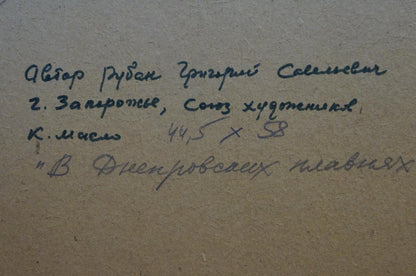 Автор Рубан Григорий Савельевич
г. Запорожье, Союз художников.
К. масло 44,5 х 58
"В Днепровских плавнях